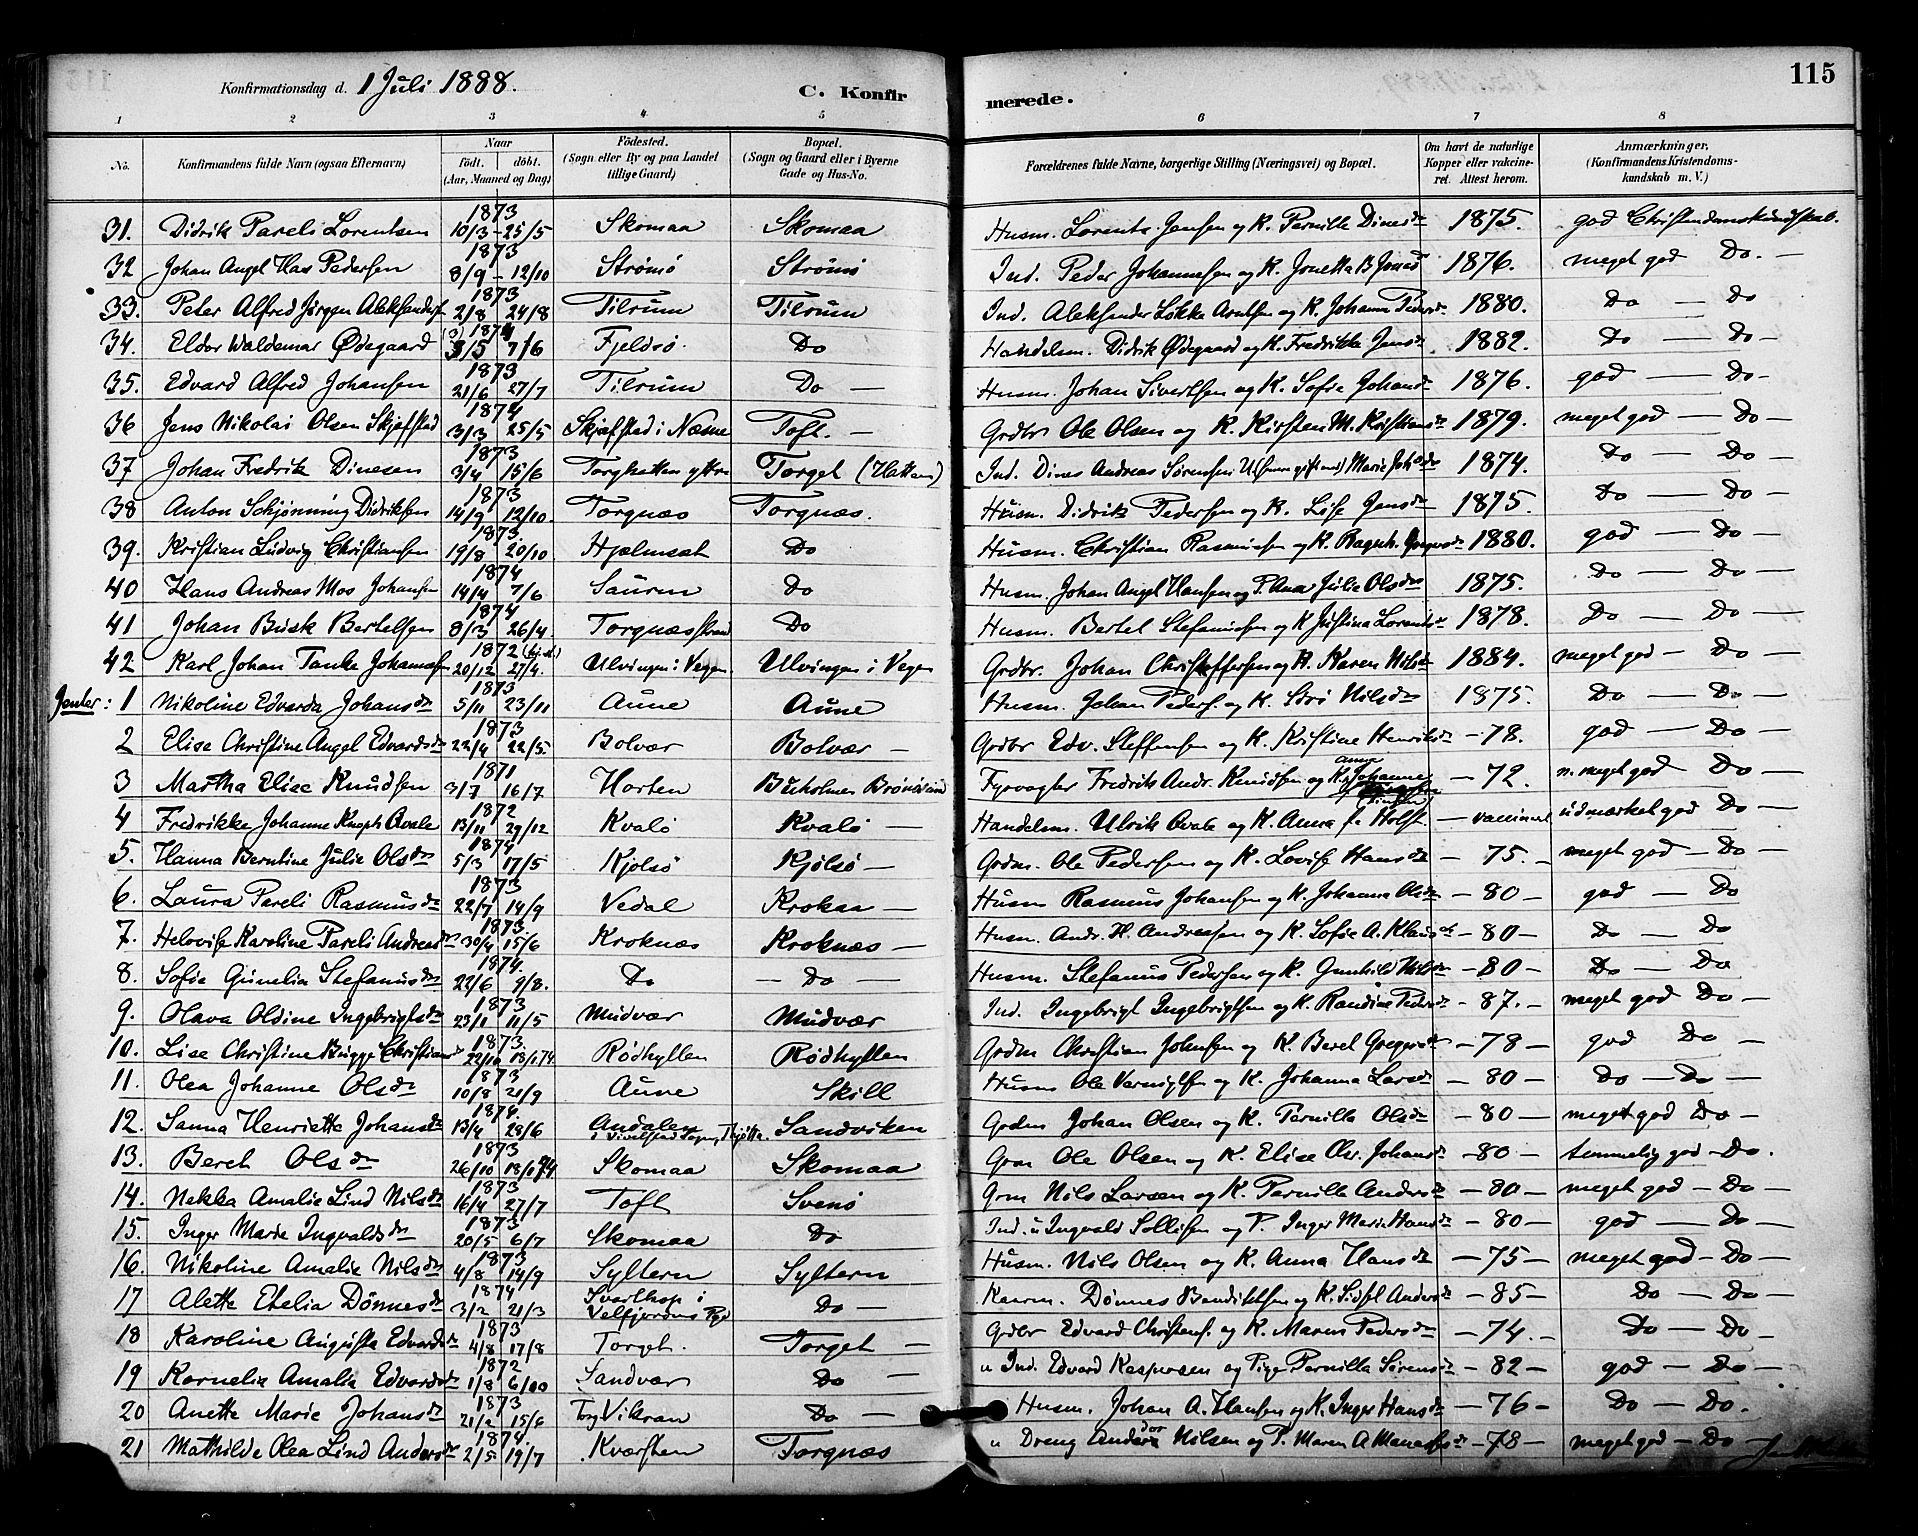 115
Konfirmationsdag d. 1 Juli 1888. C. Konfir merede.
1 2 3 4 5 6 7 8
No. Konfirmandens fulde Navn (ogsaa Efternavn) Naar födt. döbt. (Aar, Maaned og Dag) Födested. (Sogn eller By og paa Landet tillige Gaard) Bopæl. (Sogn og Gaard eller i Byerne Gade og Hus-No. Forældrenes fulde Navne, borgerlige Stilling (Næringsvei) og Bopæl. Om havt de naturlige Kopper eller vakcineret. Attest herom. Anmærkninger. (Konfirmandens Kristendomskundskab m. V.)
31. Didrik Pareli Lorentsen 1873 10/3 - 25/5 Skomaa Skomaa Husm. Lorents Jensen og K. Pernille Dinesdr 1875. god Christendomskundskab.
32 Johan Angel Has Pedersen 1873 8/9 - 12/10 Strømø Strømø Ind. Peder Johannesen og K. Jonetta B. Jonsdr 1876. meget god Do. —
33. Peter Alfred Jørgen Aleksandersen 1873 2/8 24/8 Tilrum Tilrum Ind. Aleksander Løkke Arntsen og K. Johanna Pedersdr 1880. Do — Do
34. Eldor Waldemar Ødegaard (3) 1874 3/5 7/6 Fjeldsø. Do Handelsm. Didrik Ødegaard og K. Fredrikke Jensdr 1882. Do — Do —
35. Edvard Alfred Johansen 1873 21/6 27/7 Tilrum Do — Husm. Johan Sivertsen og K. Sofie Johansdr 1876. god — Do-
36 Jens Nikolai Olsen Skjefstad 1874 3/3 25/5 Skjefstad i Næsne Toft. — Grdbr Ole Olsen og K. Kirsten M. Kristiansdr 1879. meget god — Do —
37. Johan Fredrik Dinesen 1873 3/4 15/6 Torghatten yttre Torget (Hatten) Ind. Dines Andreas Sørensen Marie Johsdr 1874. Do — Do —
38 Anton Schjønning Didriksen 1873 14/9 12/10. Torgnæs Torgnæs. Husm. Didrik Pedersen og K. Lise Jensdr 1875. Do — Do —
39. Kristian Ludvig Christiansen 1873. 19/8 20/10 Hjelmset Do Husm. Christian Rasmusen og K. Ragnh. Gregersdr 1880. god — Do
40 Hans Andreas Mos Johansen 1874 14/4 7/6 Sauren Do Husm. Johan Angel Hansen og P. Ane Julie Olsdr 1875. Do — Do —
41 Johan Busk Bertelsen 1874 8/3 26/4. Torgnæsstrand Do Husm. Bertel Stefanusen og K Justina Lorentsdr 1878. Do — Do —
42 Karl Johan Tanke Johansen 1872 20/12 27/4. Ulvingen i Vegen Ulvingen i Vegen Grdbr. Johan Christoffersen og K. Karen Nilsdr 1884. meget god - Do —
Jenter: 1 Nikoline Edvarda Johansdr 1873 5/11 23/11 Aune Aune Husm. Johan Peders. og K. Siri Nilsdr 1875. Do — Do —
2 Elise Christine Angel Edvardsdr 1873 22/4 22/5. Bolvær Bolvær — Grdbr Edv. Steffensen og K. Kristine Henriksdr - 78. god — Do —
3 Martha Elise Knudsen 1871 3/7 16/7 Horten Buholmen Brønøsund Fyrvogter Fredrik Andr. Knudsen og K. Johanne — 72. n. meget god Do —
4 Fredrikke Johanne Knoph Qvale 1872 13/11 29/12 Kvalø Kvalø — Handelsm. Ulrik Qvale og K. Anna f. Holst — vaccineret udmærket god Do —
5. Hanna Berntine Julie Olsdr 1874 5/3 17/5 Kjølsø Kjølsø — Grdm. Ole Pedersen og K. Lovise Hansdr — 75. — meget god — Do —
6. Laura Pareli Rasmusdr 1873 22/7 14/9 Vedal Krokaa — Husm Rasmus Johansen og K. Johanna Olsdr — 80 — god — Do
7. Helovise Karoline Pareli Andreasdr 1873. 30/4 15/6 Kroknæs Kroknæs — Husm. Andr. H. Andreasen og K. Sofie A. Klausdr — 80 — Do — Do
8. Sofie Gunelia Stefanusdr 1874. 22/6 9/8. Do — Do — Husm. Stefanus Pedersen og K. Gunhild Nilsdr — 80 — Do — Do
9. Olava Oldine Ingebrigtsdr 1873 23/1 11/5 Mudvær Mudvær Ind. Ingebrigt Ingebrigtsen og K. Randine Pedersdr — 87. — meget god Do —
10. Lise Christine Bugge Christiansdr 1873. 22/10 18/1 74. Rødhyllen Rødhyllen Grdm Christian Johnsen og K. Beret Gregersdr — 78 — god Do —
11. Olea Johanne Olsdr 1873 10/8 21/9 Aune Skill Husm Ole og K. Johanna Larsdr — 80 — Do — Do —
12. Sanna Henriette Johansdr 1874. 13/4 28/6 Andalen i Vivelstad Sogn, Thjøtta. Sandviken Grdm Johan Olsen og K. Pernille Olsdr — 80 — meget god Do —
13. Beret Olsdr 1873 26/10 18/1 74. Skomaa Skomaa Grm Ole Olsen og K. Elise Chr. Johansdr — 80 — temmelig god — Do.
14. Nekka Amalie Lind Nilsdr 1873 16/4 27/7 Toft Svenø Grm Nils Larsen og K. Pernille Andersdr — 80 — meget god — Do —
15. Inger Marie Ingvaldsdr 1873 20/5 6/7 Skomaa Do Ind. u Ingvald Sollisen og P. Inger Marie Hansdr — 80 — god — Do —
16. Nikoline Amalie Nilsdr 1873 4/8 14/9 Syltern Syltern Husm. Nils Olsen og K. Anna Hansdr — 75 — meget god — Do —
17 Alette Etelia Dønnesdr 1874 3/2 21/3 Svarthop i Velfjordens Do — Dønnes Bendiktsen og K. Sidsel Andersdr — 85 — Do — Do —
18 Karoline Augusta Edvardsdr 1873 4/8 17/8 Torget. Torget — Grdbr Edvard Christens. og K. Maren Pedersdr — 74. — Do — Do —
19 Kornelia Amalia Edvardsdr 1872 1/8 6/10 Sandvær Do — u Ind. Edvard Kaspersen og Pige Pernilla Sørensdr — 82 — god — Do —
20 Anette Marie Johansdr 1873 21/2 15/6 Torg Vikran Do — Husm. Johan A. Hansen og K. Inger Hansdr — 76 — Do — Do.
21 Mathilde Olea Lind Andersdr 1874 2/5 19/7 Kværsten Torgnæs u Dreng Nilsen og P. Maren A. — 78 — meget god — Do —